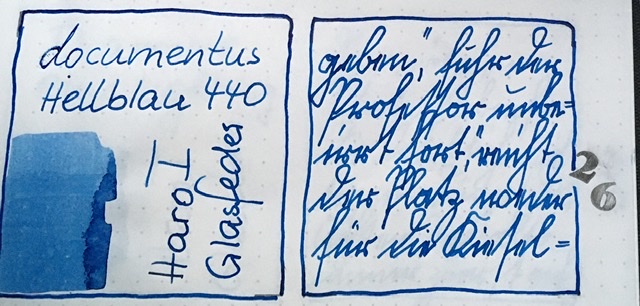 documentus
Hellblau 440
Haro I
Glasfeder
geben," fuhr der
Professor unbe=
irrt fort, "reicht
der Platz weder
für die Kiesel=
26